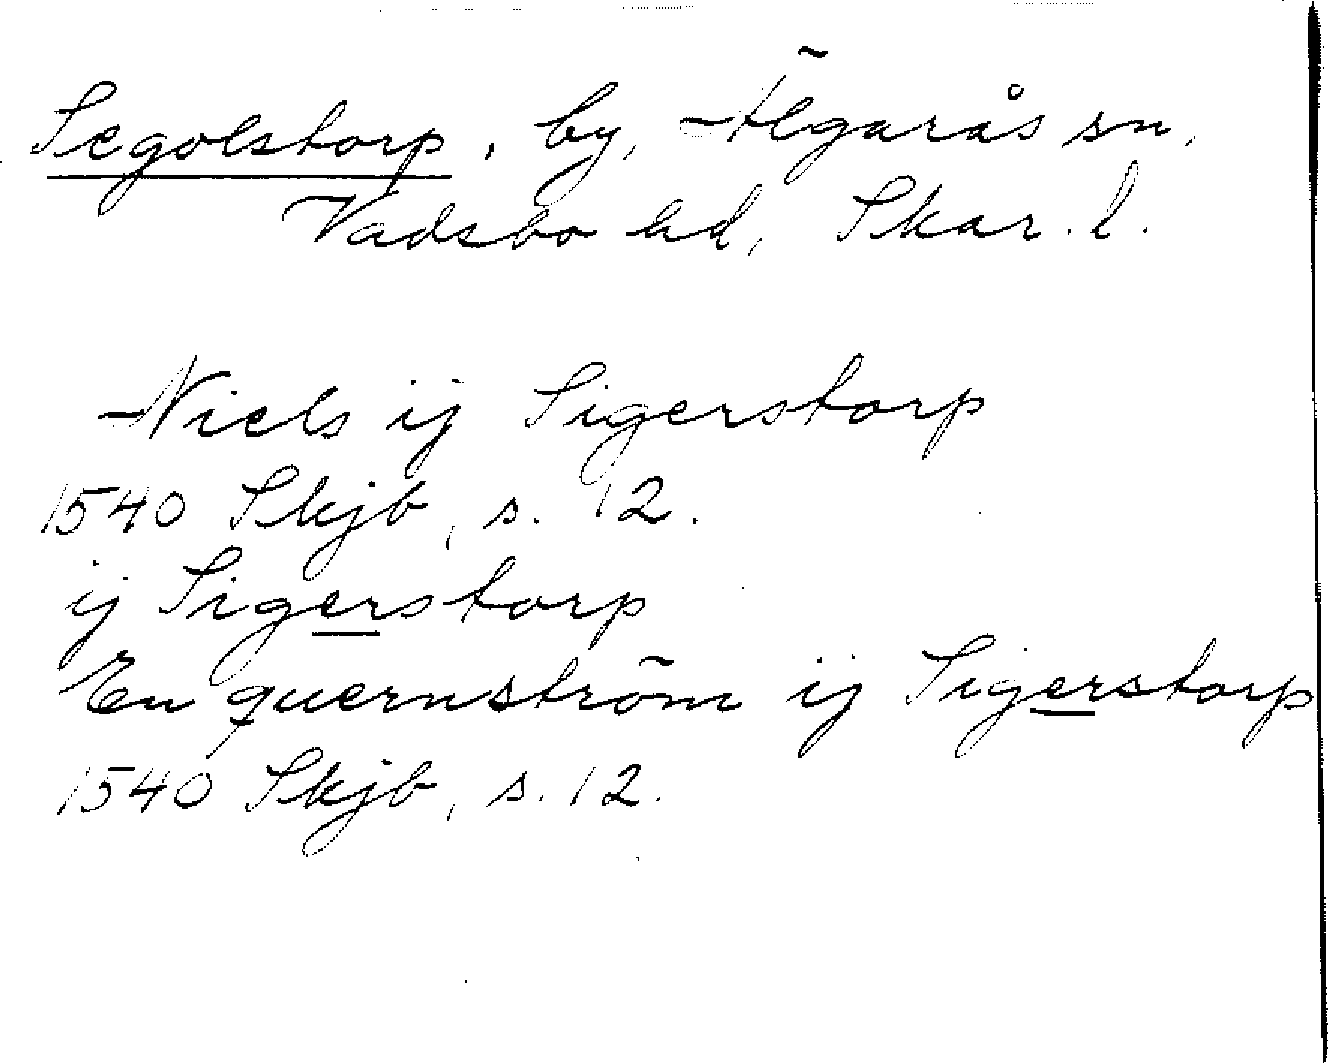 Segolstorp, by, Älgarås sn,
Vadsbo hd, Skar. l.
Niels ij Sigerstorp
1540 Skjb, s. 12.
ij Sigerstorp
En quernström ij Sigerstorp
1540 Skjb, s. 12.